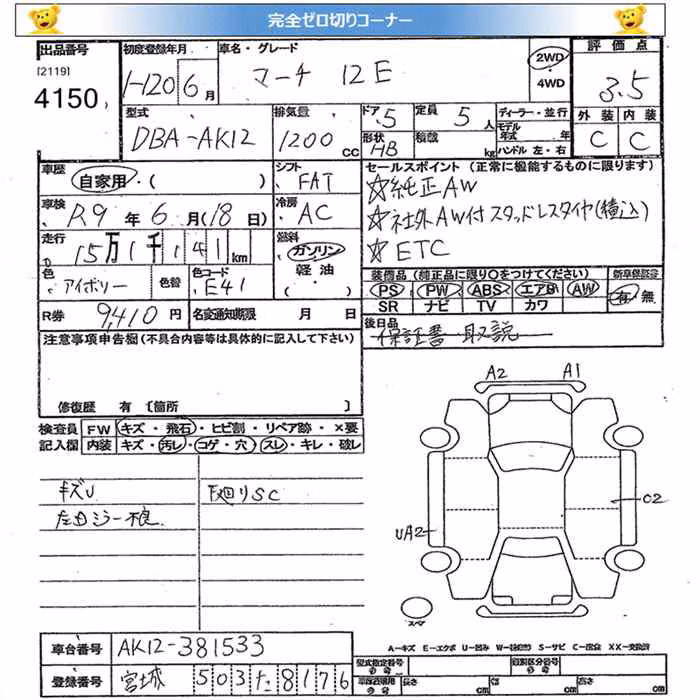 完全ゼロ切りコーナー
出品番号
[2119]
4150
初度登録年月
H20 6月
車名・グレード
マーチ 12E
2WD
・
4WD
評価点
3.5
外装 内装
C C
型式
DBA-AK12
排気量
1200 CC
ドア 5
形状 HB
定員 5人
積載 kg
ディーラー・並行
モデル年式 年
ハンドル 左・右
車歴
自家用・( )
シフト
FAT
車検
R9年6月(18日)
冷房
AC
走行
15万1千141km
燃料
ガソリン
軽油
・( )
色
アイボリー
色替
色コード
E41
R券
9,410円
名変通知期限 月 日
セールスポイント(正常に機能するものに限ります)
☆純正AW
☆社外AW付スタッドレスタイヤ(積込)
☆ETC
装備品(純正品に限り○をつけてください)
新車保証書
PS PW ABS エアB AW
SR ナビ TV カワ
有・無
後日品
保証書 取説
注意事項申告欄(不具合内容等は具体的に記入して下さい)
修復歴 有〔箇所 〕
検査員記入欄
FW キズ・飛石・ヒビ割・リペア跡・×要
内装 キズ・汚レ・コゲ・穴・スレ・キレ・破レ
キズU
下廻りSC
左ミラー不良
A2 A1
C2
UA2
スペア
A-キズ E-エクボ U-凹み S-サビ C-腐食 XX-交換済
車台番号
AK12-381533
登録番号
宮城 503た8176
型式指定番号の号
類別区分番号の号
長さ cm 幅 cm 高さ cm